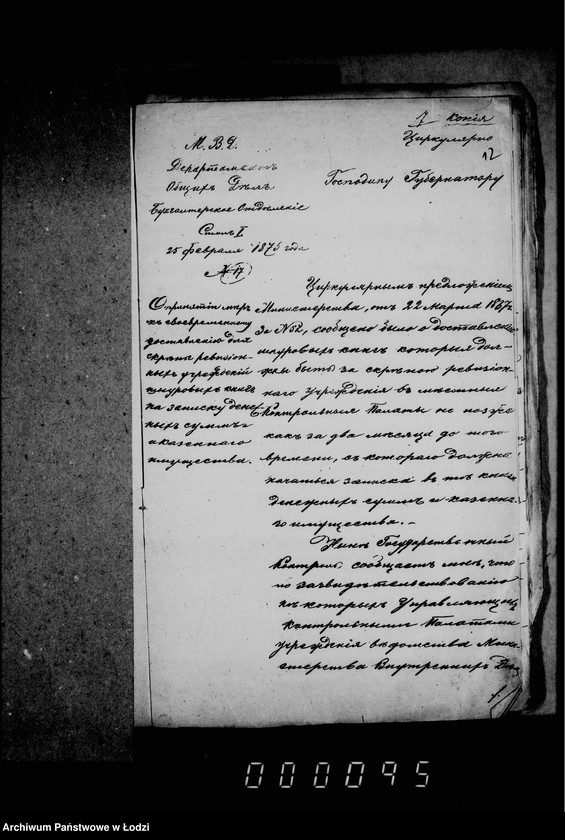 7 Копія
Циркулярно
12
М. В. Д.
Департаментъ
Общихъ Дѣлъ
Бухгалтерское Отдѣленіе
Столъ I
25 Февраля 1875 года
№ 17
Господину Губернатору
О принятіи мѣръ
къ своевременному
доставленію для
скрѣпы ревизіон-
ныхъ учрежденій
шнуровыхъ книгъ
на записку денеж-
ныхъ суммъ
и казеннаго
имущества.
Циркулярнымъ предложеніемъ
Министерства, отъ 22 Марта 1867 г.
за № 52, сообщено было о доставленіи
шнуровыхъ книгъ которыя дол-
жны быть за скрѣпою ревизіон-
наго учрежденія въ мѣстныя
Контрольныя Палаты не позже
какъ за два мѣсяца до того
времени, съ котораго должна
начаться записка въ тѣ книги
денежныхъ суммъ и казенна-
го имущества.–
Нынѣ Государственный
Контроль сообщаетъ мнѣ, что
по засвидѣтельствованію
нѣкоторыхъ Управляющихъ
Контрольными Палатами
учрежденія вѣдомства Мини-
стерства Внутреннихъ Дѣлъ
000095
Archiwum Państwowe w Łodzi